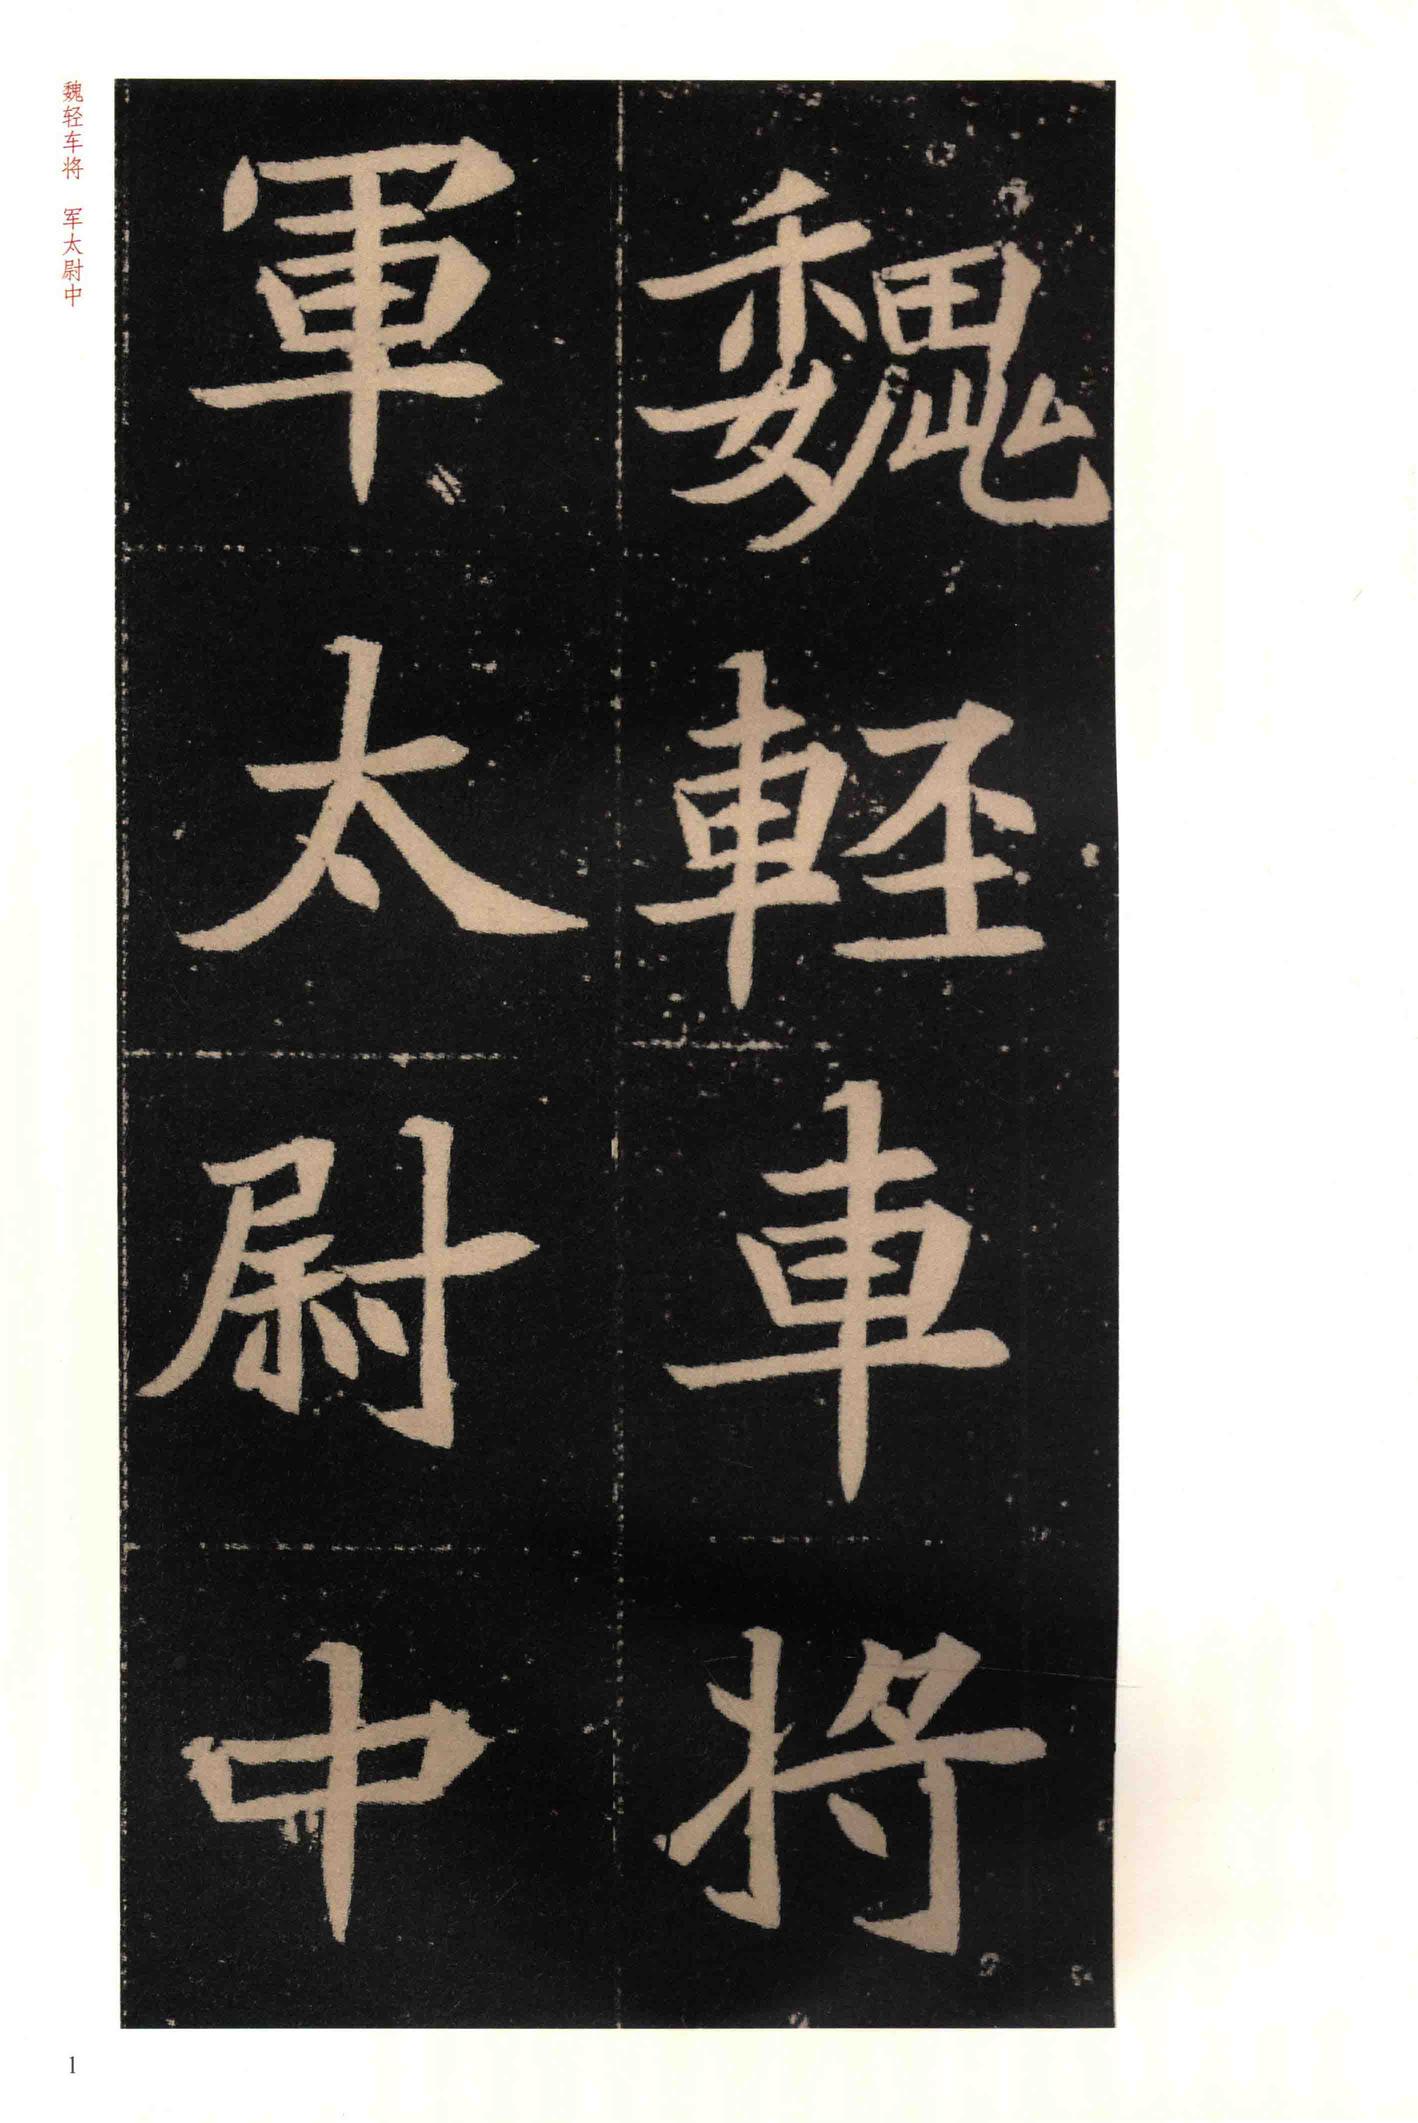 魏輕車將
軍太尉中
魏轻车将 军太尉中
1